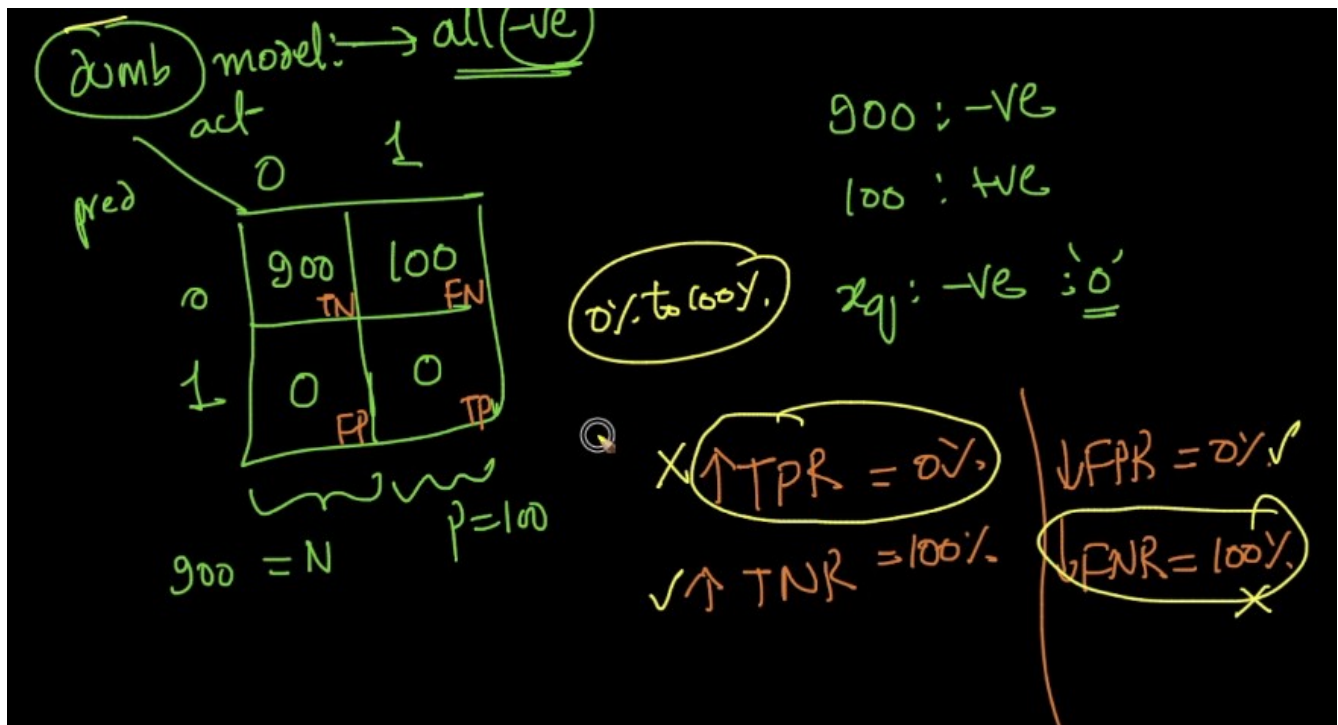 dumb model: → all -ve
act
0 1
pred
0 900 TN 100 FN
1 0 FP 0 TP
900 = N P=100
900 : -ve
100 : +ve
xq : -ve : '0'
0% to 100%
X ↑TPR = 0%
✓ ↑ TNR = 100%
↓FPR = 0% ✓
↓FNR = 100% X